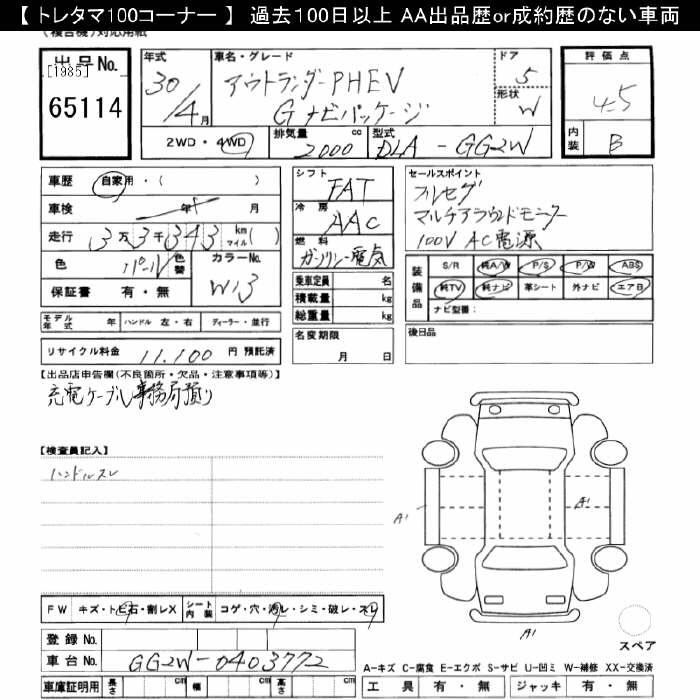 【 トレタマ100コーナー 】 過去100日以上 AA出品歴or成約歴のない車両
(複合機)対応用紙
出品No.
[1985]
65114
年式
30/4月
車名・グレード
アウトランダーPHEV
Gナビパッケージ
ドア
5
形状
W
評価点
4.5
内装
B
2WD・4WD
排気量
2000 cc
型式
DLA-GG2W
車歴 自家用・( )
車検 年 月
走行 3万3千343 km マイル( )
色 パール 色替
カラーNo.
W13
保証書 有・無
モデル年式 年 ハンドル 左・右 ディーラー・並行
リサイクル料金 11,100 円 預託済
シフト
FAT
冷房
AAC
燃料
ガソリン電気
乗車定員 名
積載量 kg
総重量 kg
名変期限
月 日
セールスポイント
フルセグ
マルチアラウンドモニター
100V AC電源
装備品
S/R 純A/W P/S P/W ABS
純TV 純ナビ 革シート 外ナビ エアB
ナビ型番:
後日品
【出品店申告欄(不良箇所・欠品・注意事項等)】
充電ケーブル事務局預り
【検査員記入】
ハンドルスレ
A1
A1
A1
FW キズ・トビ石・割レX シート内装 コゲ・穴・汚レ・シミ・破レ・スレ
登録No.
車台No. GG2W-0403772
スペア
A-キズ C-腐食 E-エクボ S-サビ U-凹ミ W-補修 XX-交換済
車庫証明用 長さ cm 幅 cm 高さ cm
工具 有・無 ジャッキ 有・無